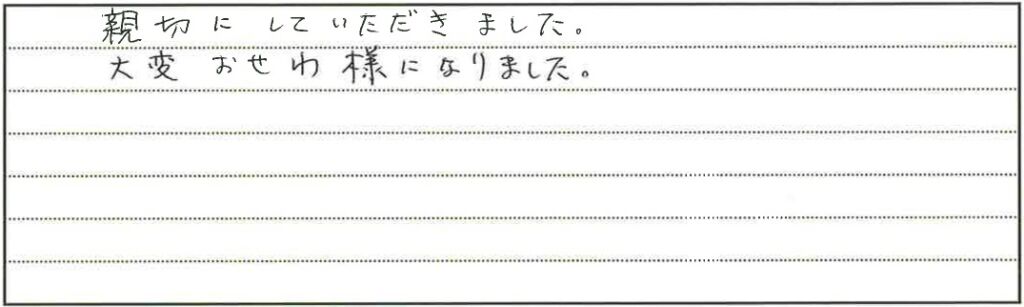 親切にしていただきました。
大変おせわ様になりました。